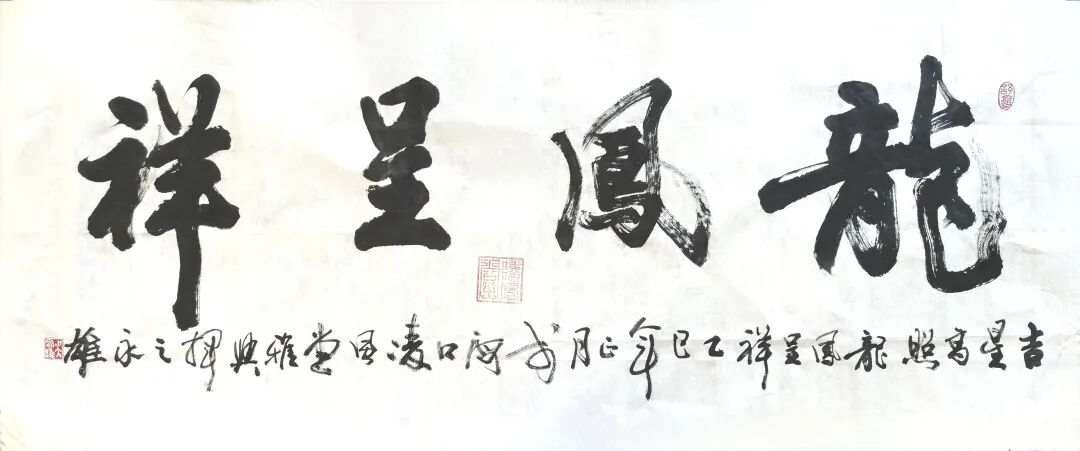 龍鳳呈祥
吉星高照龍鳳呈祥乙巳年正月於海口凌風堂雅興揮之永雄